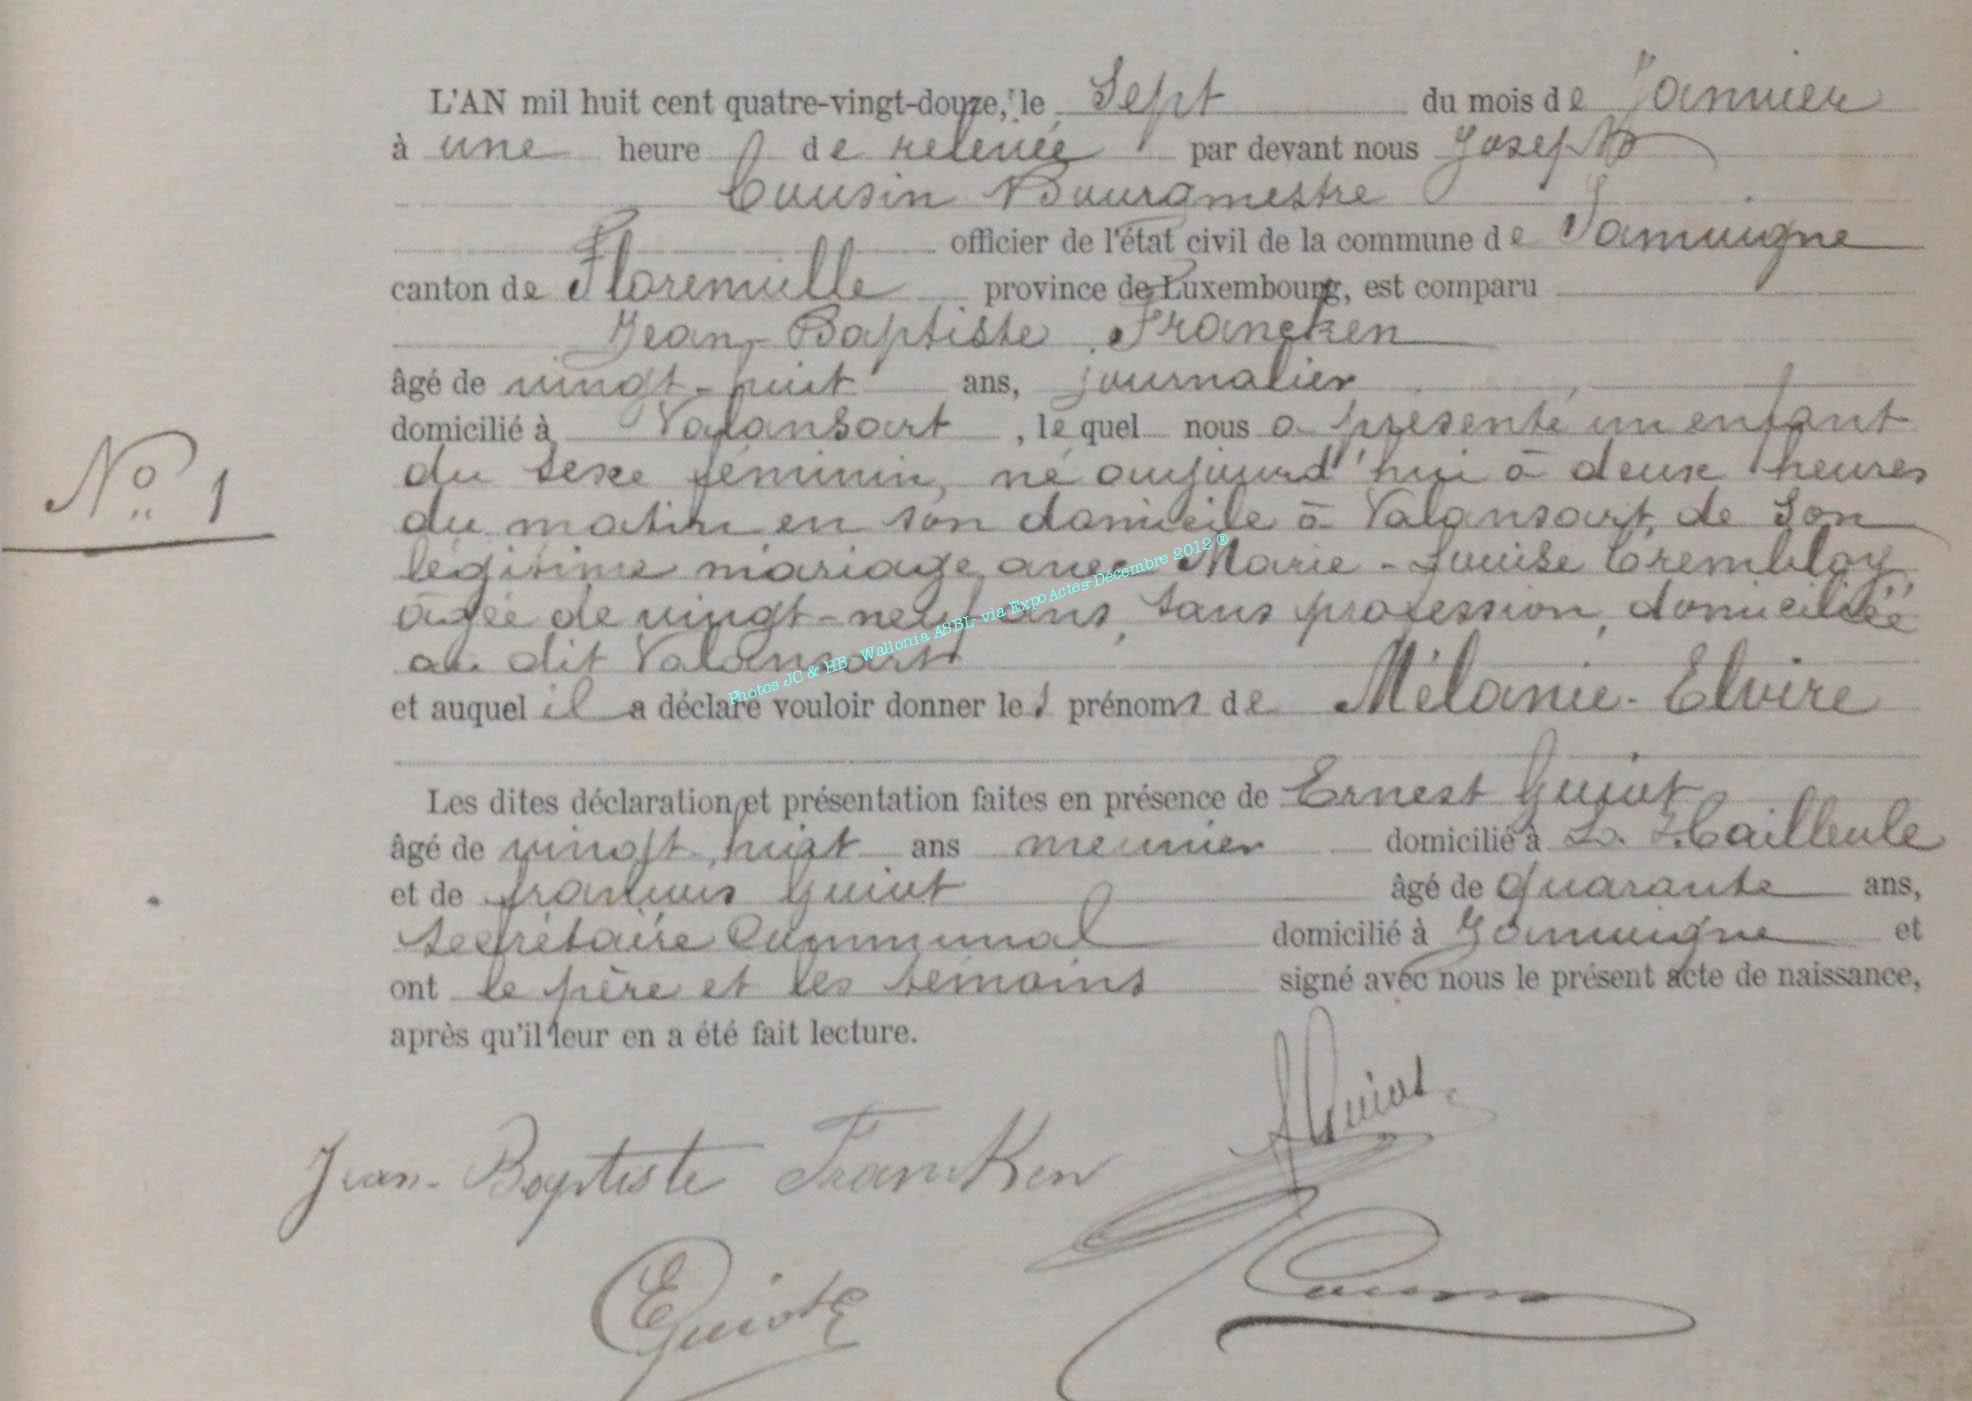 L'AN mil huit cent quatre-vingt-douze, le Sept du mois de Janvier
à une heure de relevée par devant nous Joseph
Cousin Bourgmestre
officier de l'état civil de la commune de Jamoigne
canton de Florenville province de Luxembourg, est comparu
Jean-Baptiste Francken
âgé de vingt-huit ans, journalier
domicilié à Valansart, lequel nous a présenté un enfant
du sexe féminin, né aujourd'hui à deux heures
N° 1
du matin en son domicile à Valansart, de Son
légitime mariage avec Marie-Louise Trembloy,
âgée de vingt-neuf ans, sans profession, domiciliée
au dit Valansart
Photos JC & HB - Wallonia ASBL- via ExpoActes-Décembre 2012 ®
et auquel il a déclaré vouloir donner les prénoms de Mélanie-Elvire
Les dites déclaration et présentation faites en présence de Ernest Guiot
âgé de vingt huit ans meunier domicilié à La Hailleule
et de françois Guiot âgé de quarante ans,
secrétaire Communal domicilié à Jamoigne et
ont le père et les témoins signé avec nous le présent acte de naissance,
après qu'il leur en a été fait lecture.
Guiot
Jean-Baptiste Francken
E Guiot
Cousin